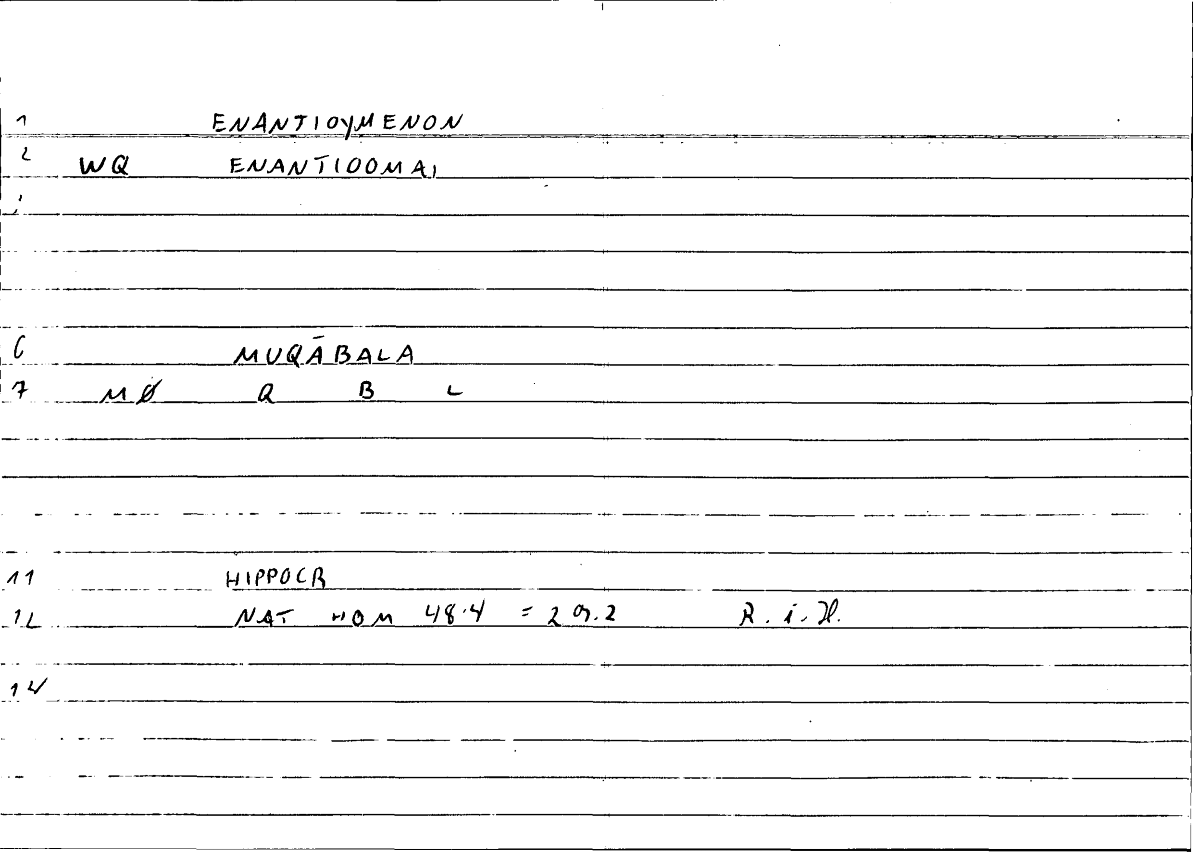 1 ENANTIOYMENON
2 WQ ENANTIOOMAI
6 MUQĀBALA
7 MØ Q B L
11 HIPPOCR
12 NAT HOM 48.4 = 29.2 R. i. H.
14